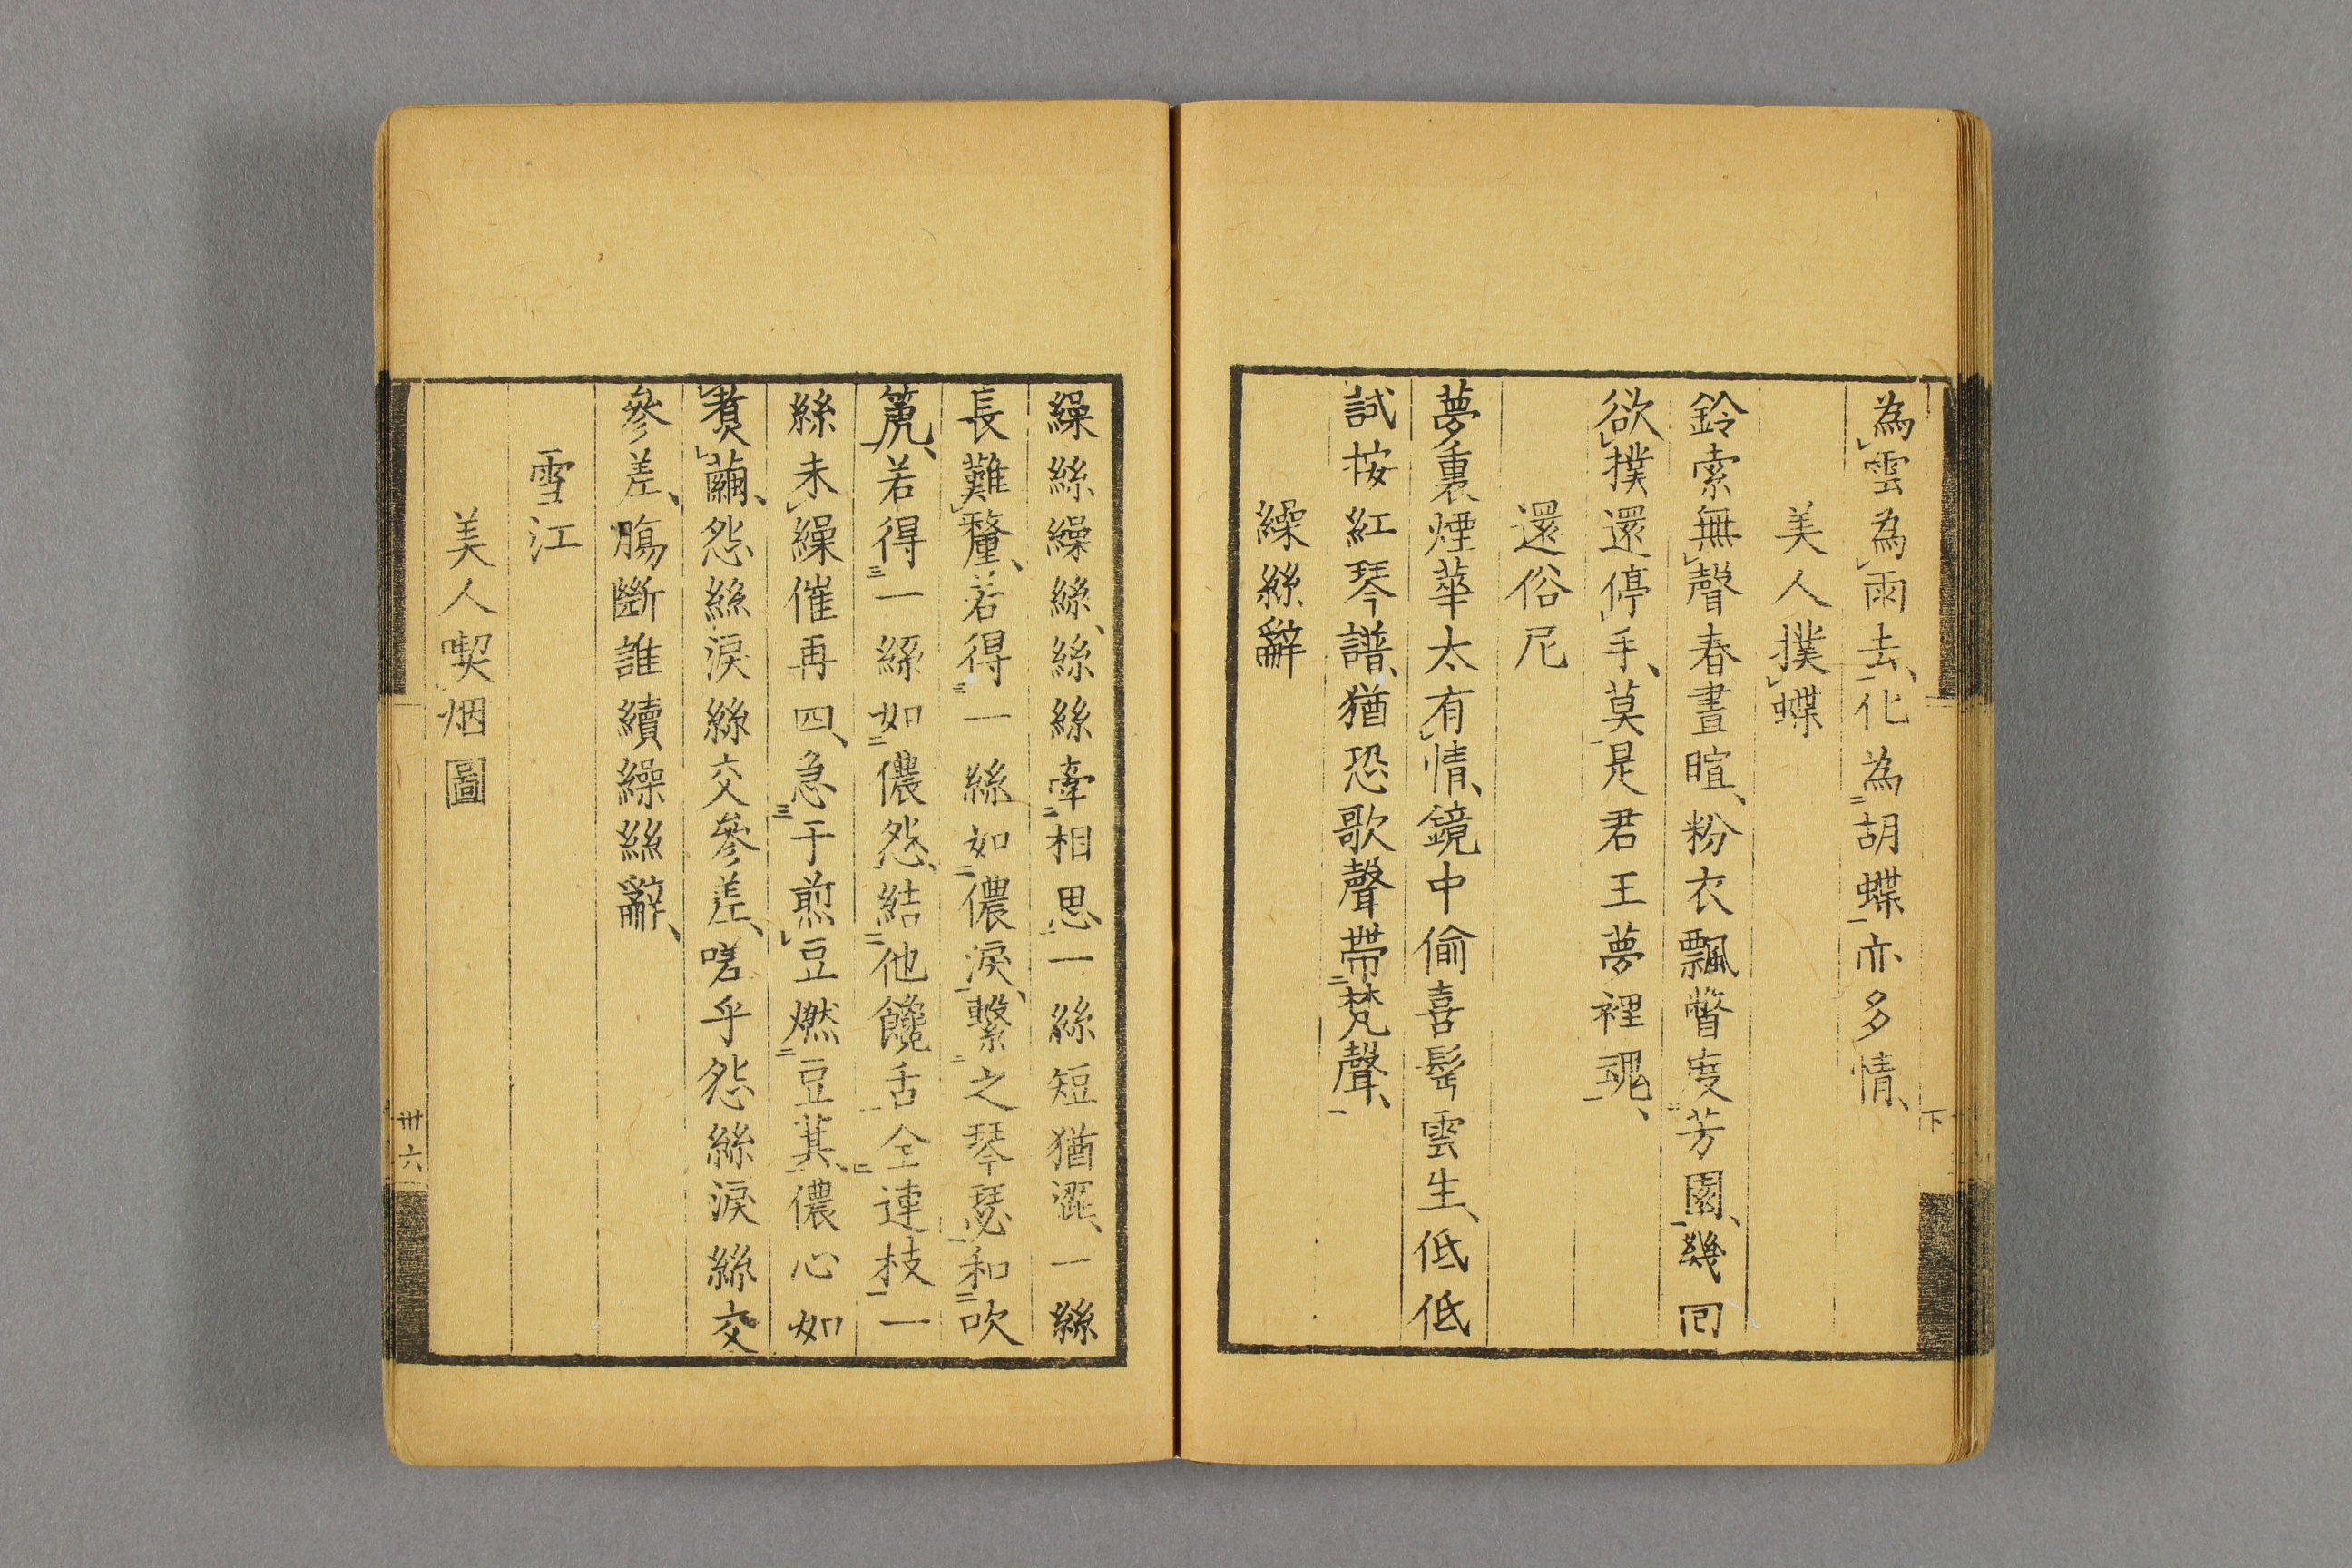 為雲為雨去、化為胡蝶亦多情、
美人撲蝶
鈴索無聲春晝暄、粉衣飄瞥度芳園、幾回
欲撲還停手、莫是君王夢裡魂、
還俗尼
夢裏煙華太有情、鏡中偷喜髩雲生、低低
試按紅琴譜、猶恐歌聲帶梵聲、
繰絲辭
下
繰絲繰絲、絲絲牽相思一絲短猶澀、一絲
長難釐、若得一絲如儂淚、繫之琴瑟和吹
篪、若得一絲如儂怨、結他饞舌全連枝一
絲未繰催再四、急于煎豆燃豆萁、儂心如
煑繭、怨絲淚絲交參差、嗟乎怨絲淚絲交
參差、腸斷誰續繰絲辭、
雪江
美人喫烟圖
卅六